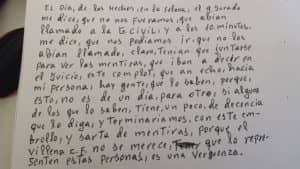 El Dia, de los Hechos, en la solena, el g Surado
me dice, que no nos fueramos, que abian
llamado a la G.Civil; y a los 10 minutos.
me dice, que nos podiamos ir, que no los
abian llamado, claro, Tenian que juntarse
para ver las mentiras, que iban a decir en
el Juicio, este complot, que an echo, hacia
mi persona, hay gente, que lo saben, porque,
esto, no es de un dia, para otro, si alguno
de los que lo saben, Tiene, un poco, de decencia
que lo diga, y Terminariamos, con este em-
brollo, y sarta de mentiras, porque el
Villena C.F. no se merece, que lo repre-
senten estas personas, es una Verguenza.